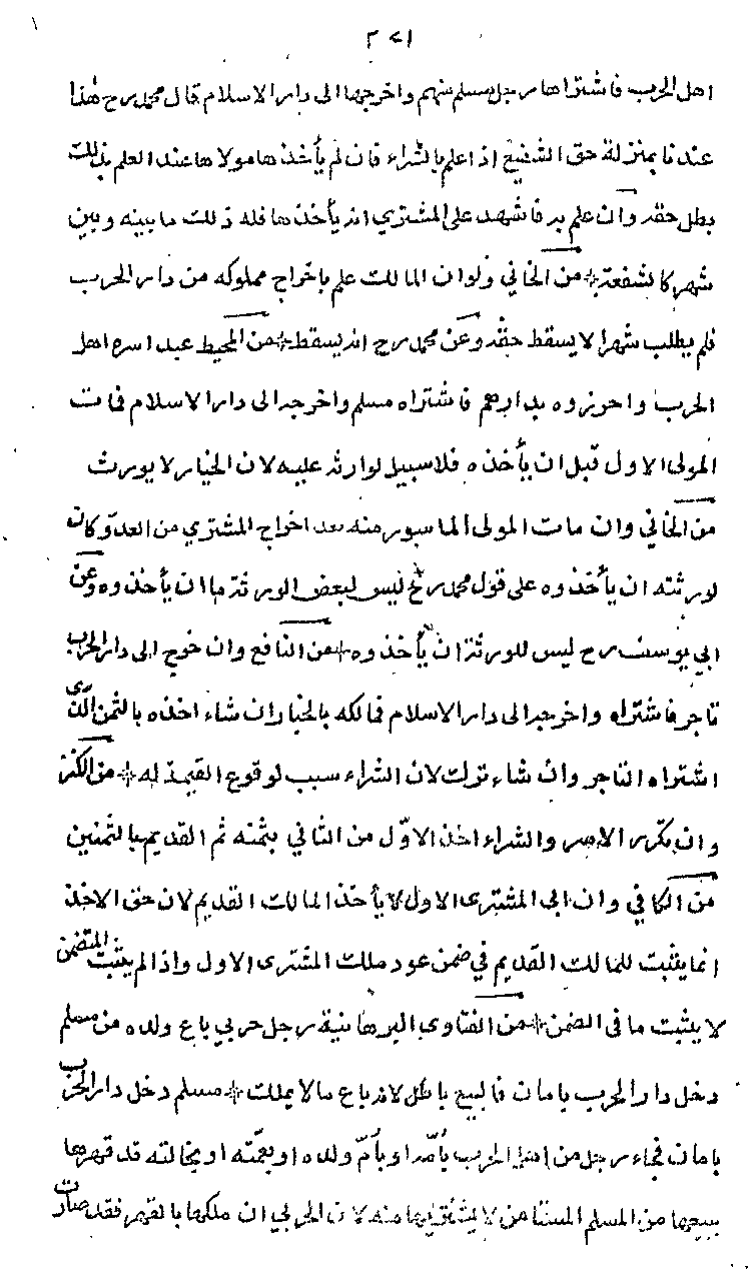 ٢٧١
اهل الحرب فاشتراها رجل مسلم منهم واخرجها الى دار الاسلام قال محمد رح هذا
عندنا بمنزلة حق الشفيع اذا علم بالشراء فان لم يأخذها مولاها عند العلم بذلك
بطل حقه وان علم به فاشهد على المشتري انه يأخذها فله ذلك ما بينه وبين
شهر كالشفعة * من الخاني ولو ان المالك علم باخراج مملوكه من دار الحرب
فلم يطلب شهرا لا يسقط حقه وعن محمد رح انه يسقط * من المحيط عبد اسره اهل
الحرب واحرزوه بدارهم فاشتراه مسلم واخرجه الى دار الاسلام فمات
المولى الاول قبل ان يأخذه فلا سبيل لوارثه عليه لان الخيار لا يورث
من الخاني وان مات المولى الماسور منه بعد اخراج المشتري من العدو كان
لورثته ان يأخذوه على قول محمد رح ليس لبعض الورثة ما ان يأخذوه وعن
ابي يوسف رح ليس للورثة ان يأخذوه * من النافع وان خرج الى دار الحرب
تاجر فاشتراه واخرجه الى دار الاسلام فمالكه بالخيار ان شاء اخذه بالثمن الذى
اشتراه التاجر وان شاء ترك لان الشراء سبب لوقوع القيمة له * من الكنز
وان تكرر الاسر والشراء اخذ الاوّل من الثاني بثمنه ثم القديم بالثمنين
من الكافي وان ابى المشترى الاول لا يأخذ المالك القديم لان حق الاخذ
انما يثبت للمالك القديم في ضمن عود ملك المشترى الاول واذا لم يثبت المتضمن
لا يثبت ما فى الضمن * من الفتاوى البرهانية رجل حربي باع ولده من مسلم
دخل دار الحرب بامان فالبيع باطل لانه باع ما لا يملك * مسلم دخل دار الحرب
بامان فجاء رجل من اهل الحرب بأمّه او بأمّ ولده او بعمّته او بخالته قد قهرها
يبيعها من المسلم المستامن لا يشتريها منه لان الحربي ان ملكها بالقهر فقد صارت